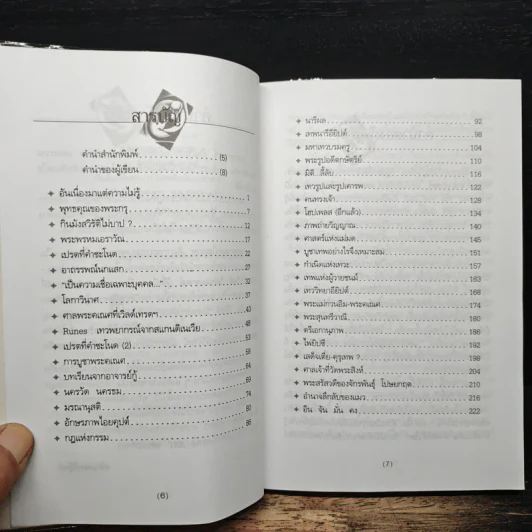 สารบัญ
คำนำสำนักพิมพ์ (5)
คำนำของผู้เขียน (8)
อันเนื่องมาแต่ความไม่รู้ 1
พุทธคุณของพระกรุ 7
กินมังสวิรัติไม่บาป ? 12
พระพรหมเอราวัณ 17
เปรตที่คำชะโนด 22
อาถรรพณ์นกแสก 27
"เป็นความเชื่อเฉพาะบุคคล..." 32
โลกาวินาศ 37
ศาลพระคเณศที่เวิลด์เทรดฯ 43
Runes เทวพยากรณ์จากสแกนดิเนเวีย 48
เปรตที่คำชะโนด (2) 53
การบูชาพระคเณศ 58
บทเรียนจากอาจารย์กู้ 64
นครวัด นครธม 69
มรณานุสติ 74
อักษรภาพไอยคุปต์ 80
กฎแห่งกรรม 86
(6)
นารีผล 92
เทพนารีอียิปต์ 98
มหาเทวบรมครู 104
พระรูปอดีตกษัตริย์ 110
มิติ...ลี้ลับ 116
เทวรูปและรูปเคารพ 122
คนทรงเจ้า 128
โฮปเพลส (อีกแล้ว) 134
ภาพถ่ายวิญญาณ 140
ศาสตร์แห่งแม่มด 145
บูชาเทพอย่างไรจึงเหมาะสม 151
กำเนิดแห่งเทวะ 157
เทพแห่งผู้วายชนม์ 163
เทววิทยาอียิปต์ 168
พระแม่กวนอิม-พระคเณศ 174
พระสุนทรีวาณี 180
ตรีเอกานุภาพ 186
ไพ่ยิปซี 192
เสด็จเตี่ย-คุรุเทพ ? 198
ศาลเจ้าที่วัดพระสิงห์ 204
พระสรัสวดีของจักรพันธุ์ โปษยกฤต 210
อำนาจลึกลับของแมว 216
อิน จัน มั่น คง 222
(7)